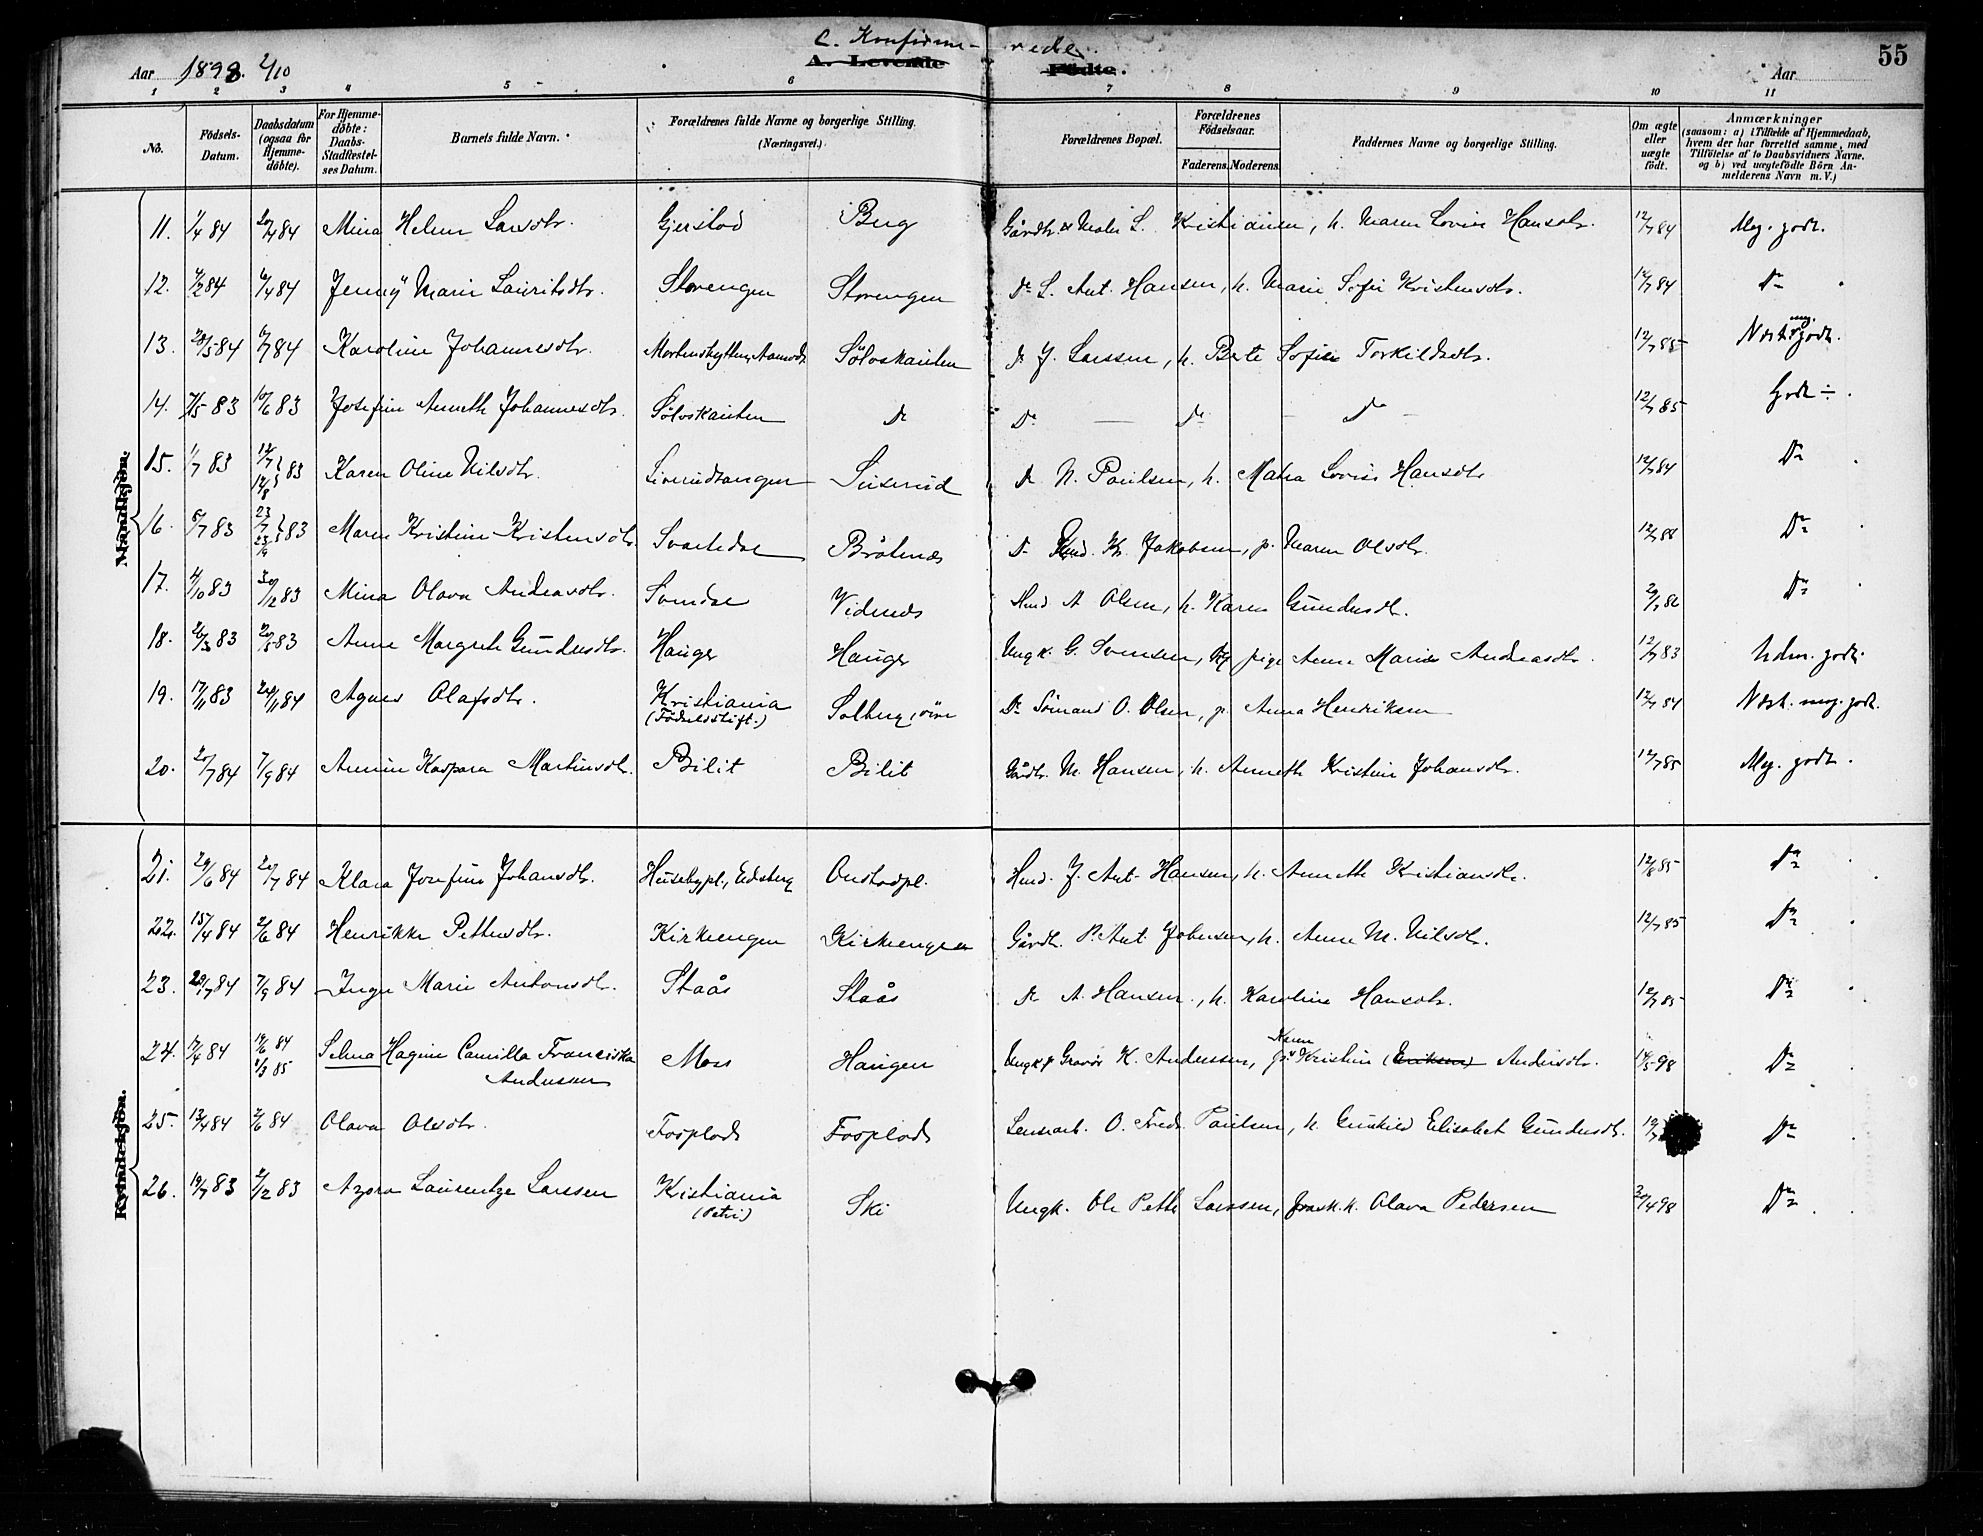 C. Konfirme- rede.
A. Levende Fødte. 55
Aar 1898. 2/10 Aar
1 2 3 4 5 6 7 8 9 10 11
No. Födsels-Datum. Daabsdatum (ogsaa for Hjemme-döbte). For Hjemme-döbte: Daabs-Stadfæstel-ses Datum. Barnets fulde Navn. Forældrenes fulde Navne og borgerlige Stilling. (Næringsvei.) Forældrenes Bopæl. Forældrenes Födselsaar. Faderens. Moderens. Faddernes Navne og borgerlige Stilling. Om ægte eller uægte født. Anmærkninger (saasom: a) i Tilfælde af Hjemmedaab, hvem der har forrettet samme, med Tilföielse af to Daabsvidners Navne, og b) ved uægtefödte Börn An-melderens Navn m. V.)
Mandkjön.
11. 1/4 84 20/4 84 Mina Helene Larsdtr. Gjerstad Berg Gårdbr. L. Kristiansen, h. Maren Lovise Hansdtr. 12/7 84 Meg. godt.
12. 84 6/4 84 Jenny Marie Lauritsdtr. Storengen Storengen Do L. Ant. Hansen, h. Marie Sofie Kristensdtr. 12/7 84 Do
13. 20/5 84 6/7 84 Karoline Johannesdtr. Söloskauten Do J. Larssen, h. Berte Sofie Torkildsdtr. 12/7 85 Næsten meg. godt.
14. 7/5 83 10/6 83 Josefine Anneth Johannesdtr. Söloskauten Do Do — Do — Do — 12/7 85 Godt ÷.
15. 1/7 83 12/7 12/8 83 Karen Oline Nilsdtr. Siverudtangen Siverud Do N. Paulsen, h. Matea Lovise Hansdtr. 12/7 84 Do
16. 6/7 83 23/7 23/9 83 Maren Kristine Kristensdtr. Svartedal Bråtenæs Do Kr. Jakobsen, p. Maren Olsdtr. 12/7 88 Do
17. 4/10 83 30/12 83 Mina Olava Andreasdtr. Svendse Vidnes Hmd. A Olsen, h. Karen Gundersdtr. Do
18. 20/3 83 20/5 83 Anne Margrete Gundersdtr. Hauger Hauger Ungk. G. Svensen, pige Anne Marie Andreasdtr. 12/7 83 Udm. godt.
19. 17/11 83 84 Agnes Olafsdtr. Kristiania (Födselsstift.) Solberg, övre Do Sömand O. Olsen, p. Anna Henriksen 12/7 84 Næst. meg. godt.
20. 20/7 84 7/9 84 Annine Kaspara Martinsdtr. Bilit Bilit Gårdbr. M. Hansen, h. Anneth Kristine Johansdtr. 12/7 85 Meg. godt.
Kvindekjön.
21. 29/6 84 20/7 84 Klara Josefine Johansdtr. Husebypl., Eidsberg Onstadpl. Hmd. J. Ant. Hansen, h. Anneth Kristiansdtr. 12/8 85 Do
22. 15/4 84 2/6 84 Henrikke Pettersdtr. Kirkeengen Kirkeengen Gårdbr. P. Ant. Johnsen, h. Anne M. Nilsdtr. 12/7 85 Do
23. 29/7 84 7/9 84 Inga Marie Antonsdtr. Staås Staås Do A. Hansen, h. Karoline Hansdtr. 12/7 85 Do
24. 17/4 84 19/6 84 85 Selma Hagine Camilla Franciska Moss Haugen Ungk. Gravör K. Andersen, pi. Karen Kristine (Eriksen) Andersdtr. 98 Do
Andersen
25. 13/4 84 2/6 84 Olava Olsdtr. Fosplads Fosplads O. Fredr. Paulsen, h. Gunhild Elisabet Gundersdtr. Do
26. 19/7 83 2/12 83 Azora Laurentze Larssen Kristiania (Petri) Ski Ungk. Ole Petter Larssen, Olava Pedersen 20/4 98 Do